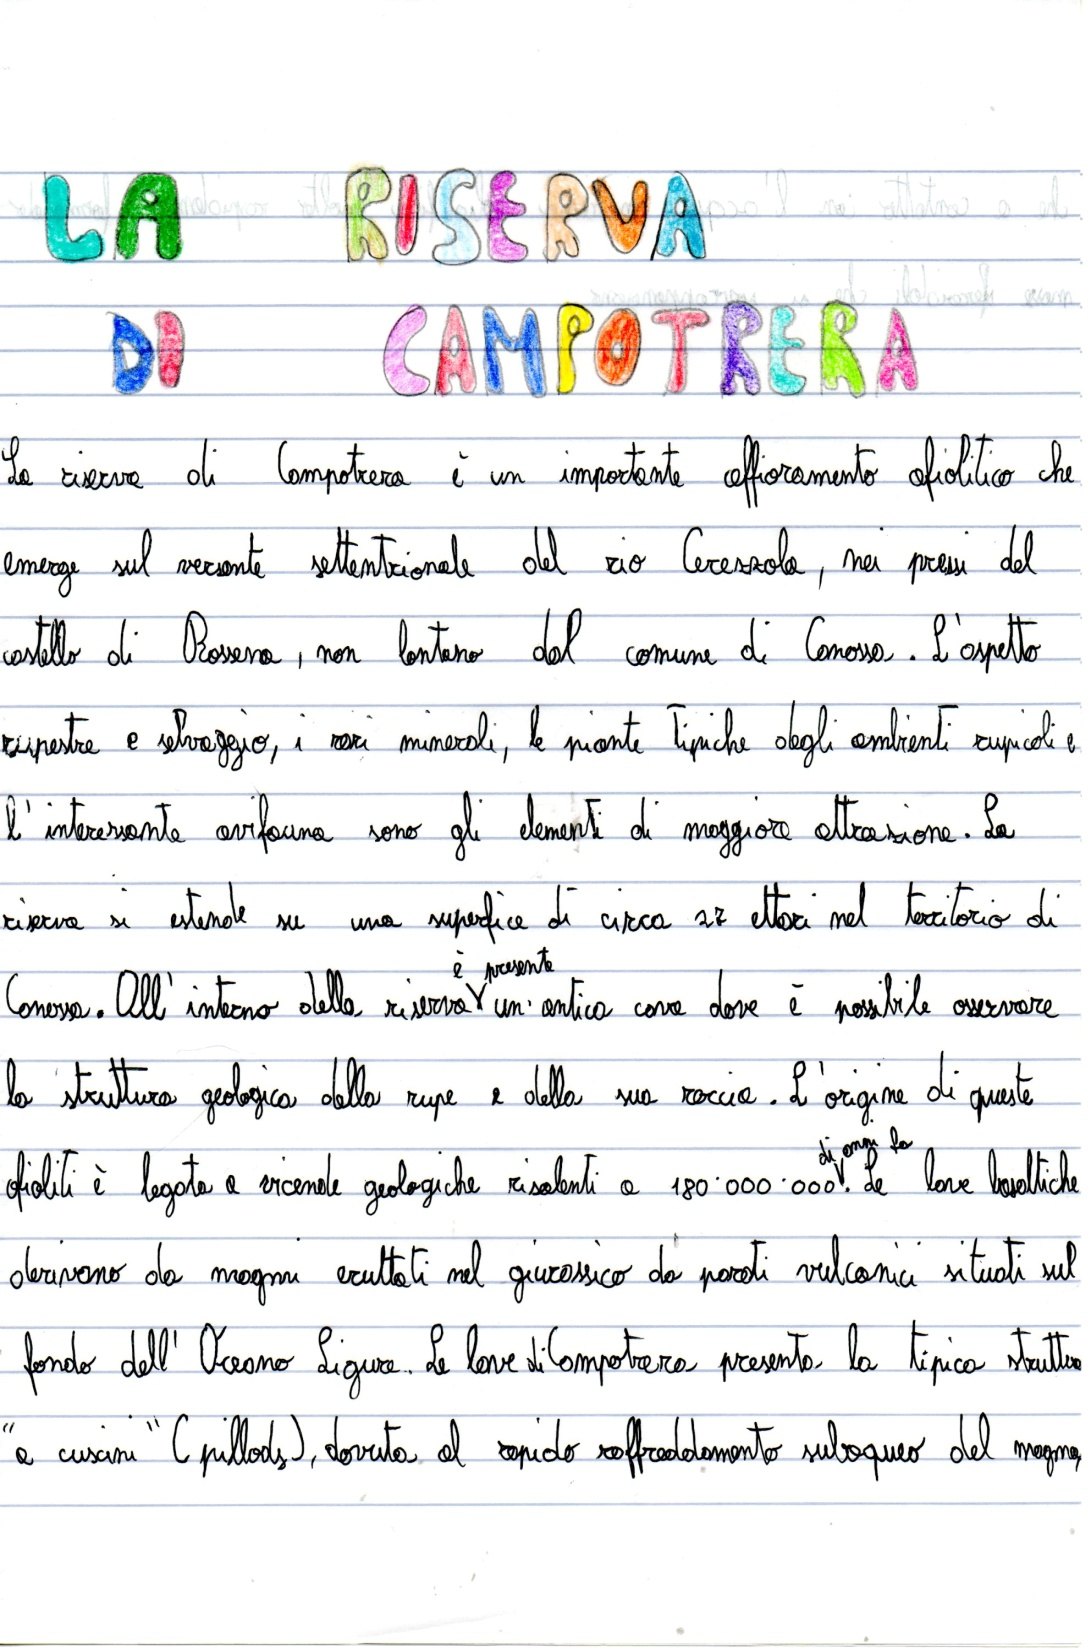 LA RISERVA
DI CAMPOTRERA
La riserva di Campotrera è un importante affioramento ofiolitico che
emerge sul versante settentrionale del rio Cerezzola, nei pressi del
castello di Rossena, non lontano dal comune di Canossa. L'aspetto
rupestre e selvaggio, i rari minerali, le piante tipiche degli ambienti rupicoli e
l'interessante avifauna sono gli elementi di maggiore attrazione. La
riserva si estende su una superfice di circa 27 ettari nel territorio di
è presente
Canossa. All'interno della riserva un'antica cava dove è possibile osservare
la struttura geologica della rupe e della sua roccia. L'origine di queste
di anni fa
ofioliti è legata a vicende geologiche risalenti a 180.000.000. Le lave basaltiche
derivano da magmi eruttati nel giurassico da parati vulcanici situati sul
fondo dell'Oceano Ligure. Le lave di Campotrera presenta la tipica struttura
"a cuscini" (pillods), dovuta al rapido raffreddamento subaqueo del magma,